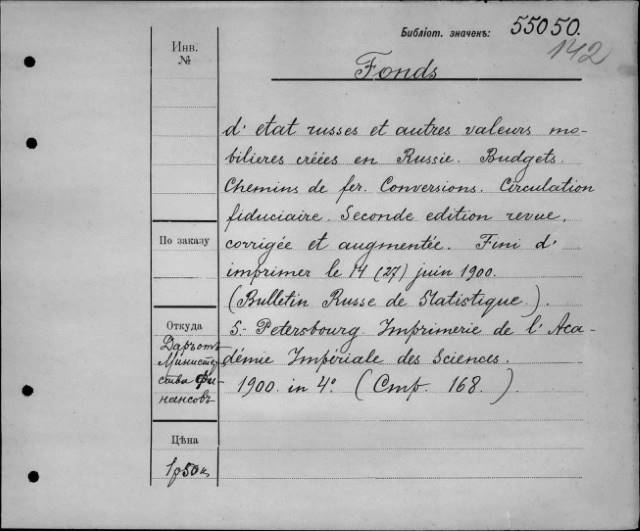 Библіот. значенъ: 55050.
142
Инв.
№
Fonds
d' etat russes et autres valeurs mo-
bilieres créées en Russie. Budgets.
Chemins de fer. Conversions. Circulation
fiduciaire. Seconde edition revue,
По заказу
corrigée et augmentée. Fini d'
imprimer le 14 (27) juin 1900.
(Bulletin Russe de Statistique.)
Откуда
Даръ отъ
Министер
ства Фи-
нансовъ
S.- Petersbourg Imprimerie de l' Aca-
démie Impériale des Sciences.
1900. in 4°. (Стр. 168.)
Цѣна
1р 50 к